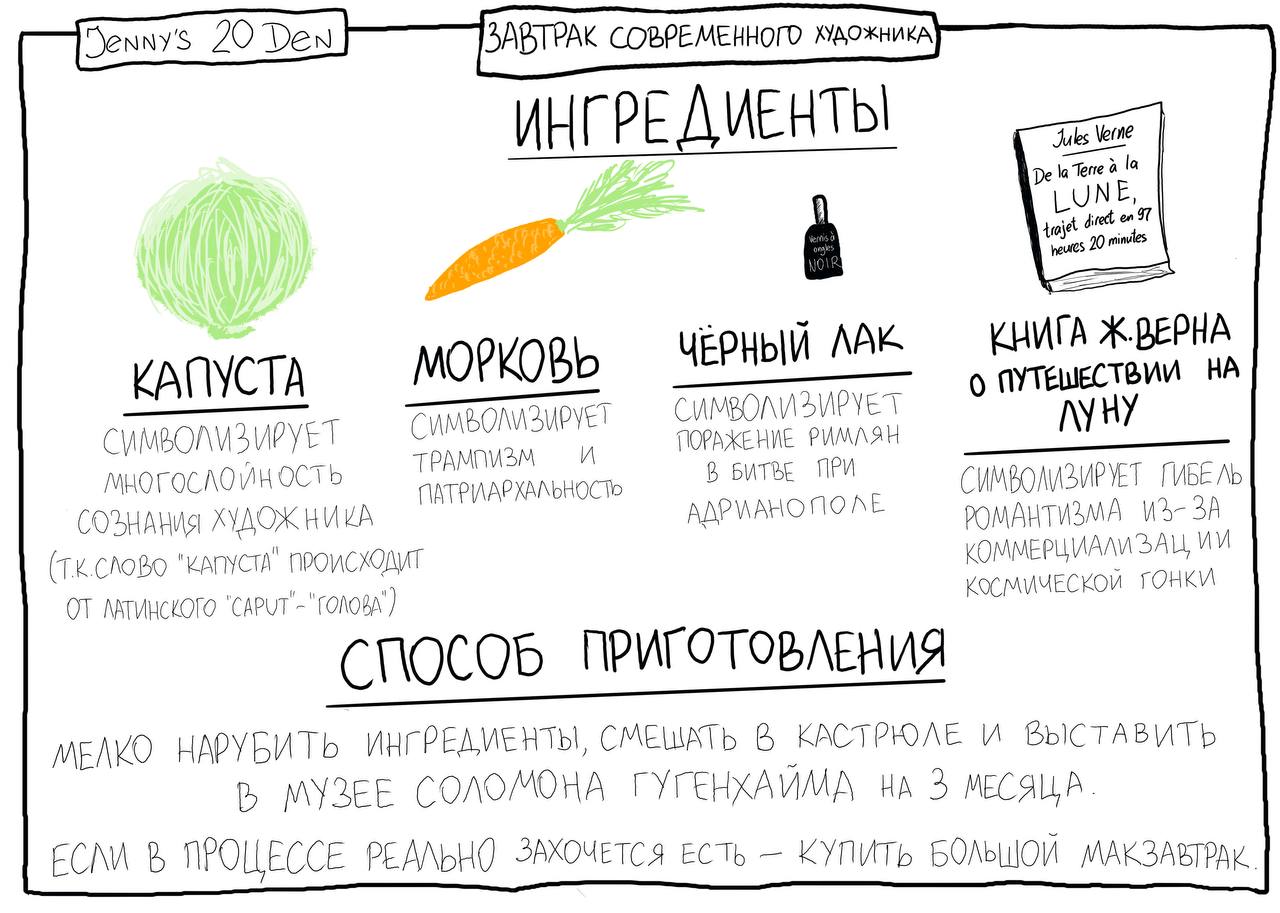 JENNY'S 20 DEN
ЗАВТРАК СОВРЕМЕННОГО ХУДОЖНИКА
ИНГРЕДИЕНТЫ
КАПУСТА
СИМВОЛИЗИРУЕТ
МНОГОСЛОЙНОСТЬ
СОЗНАНИЯ ХУДОЖНИКА
(Т.К.СЛОВО "КАПУСТА" ПРОИСХОДИТ
ОТ ЛАТИНСКОГО "CAPUT"-"ГОЛОВА")
МОРКОВЬ
СИМВОЛИЗИРУЕТ
ТРАМПИЗМ И
ПАТРИАРХАЛЬНОСТЬ
Vernis à
ongles
NOIR
ЧЁРНЫЙ ЛАК
СИМВОЛИЗИРУЕТ
ПОРАЖЕНИЕ РИМЛЯН
В БИТВЕ ПРИ
АДРИАНОПОЛЕ
Jules Verne
De la Terre à la
LUNE,
trajet direct en 97
heures 20 minutes
КНИГА Ж.ВЕРНА
О ПУТЕШЕСТВИИ НА
ЛУНУ
СИМВОЛИЗИРУЕТ ГИБЕЛЬ
РОМАНТИЗМА ИЗ-ЗА
КОММЕРЦИАЛИЗАЦИИ
КОСМИЧЕСКОЙ ГОНКИ
СПОСОБ ПРИГОТОВЛЕНИЯ
МЕЛКО НАРУБИТЬ ИНГРЕДИЕНТЫ, СМЕШАТЬ В КАСТРЮЛЕ И ВЫСТАВИТЬ
В МУЗЕЕ СОЛОМОНА ГУГЕНХАЙМА НА 3 МЕСЯЦА.
ЕСЛИ В ПРОЦЕССЕ РЕАЛЬНО ЗАХОЧЕТСЯ ЕСТЬ – КУПИТЬ БОЛЬШОЙ МАКЗАВТРАК.